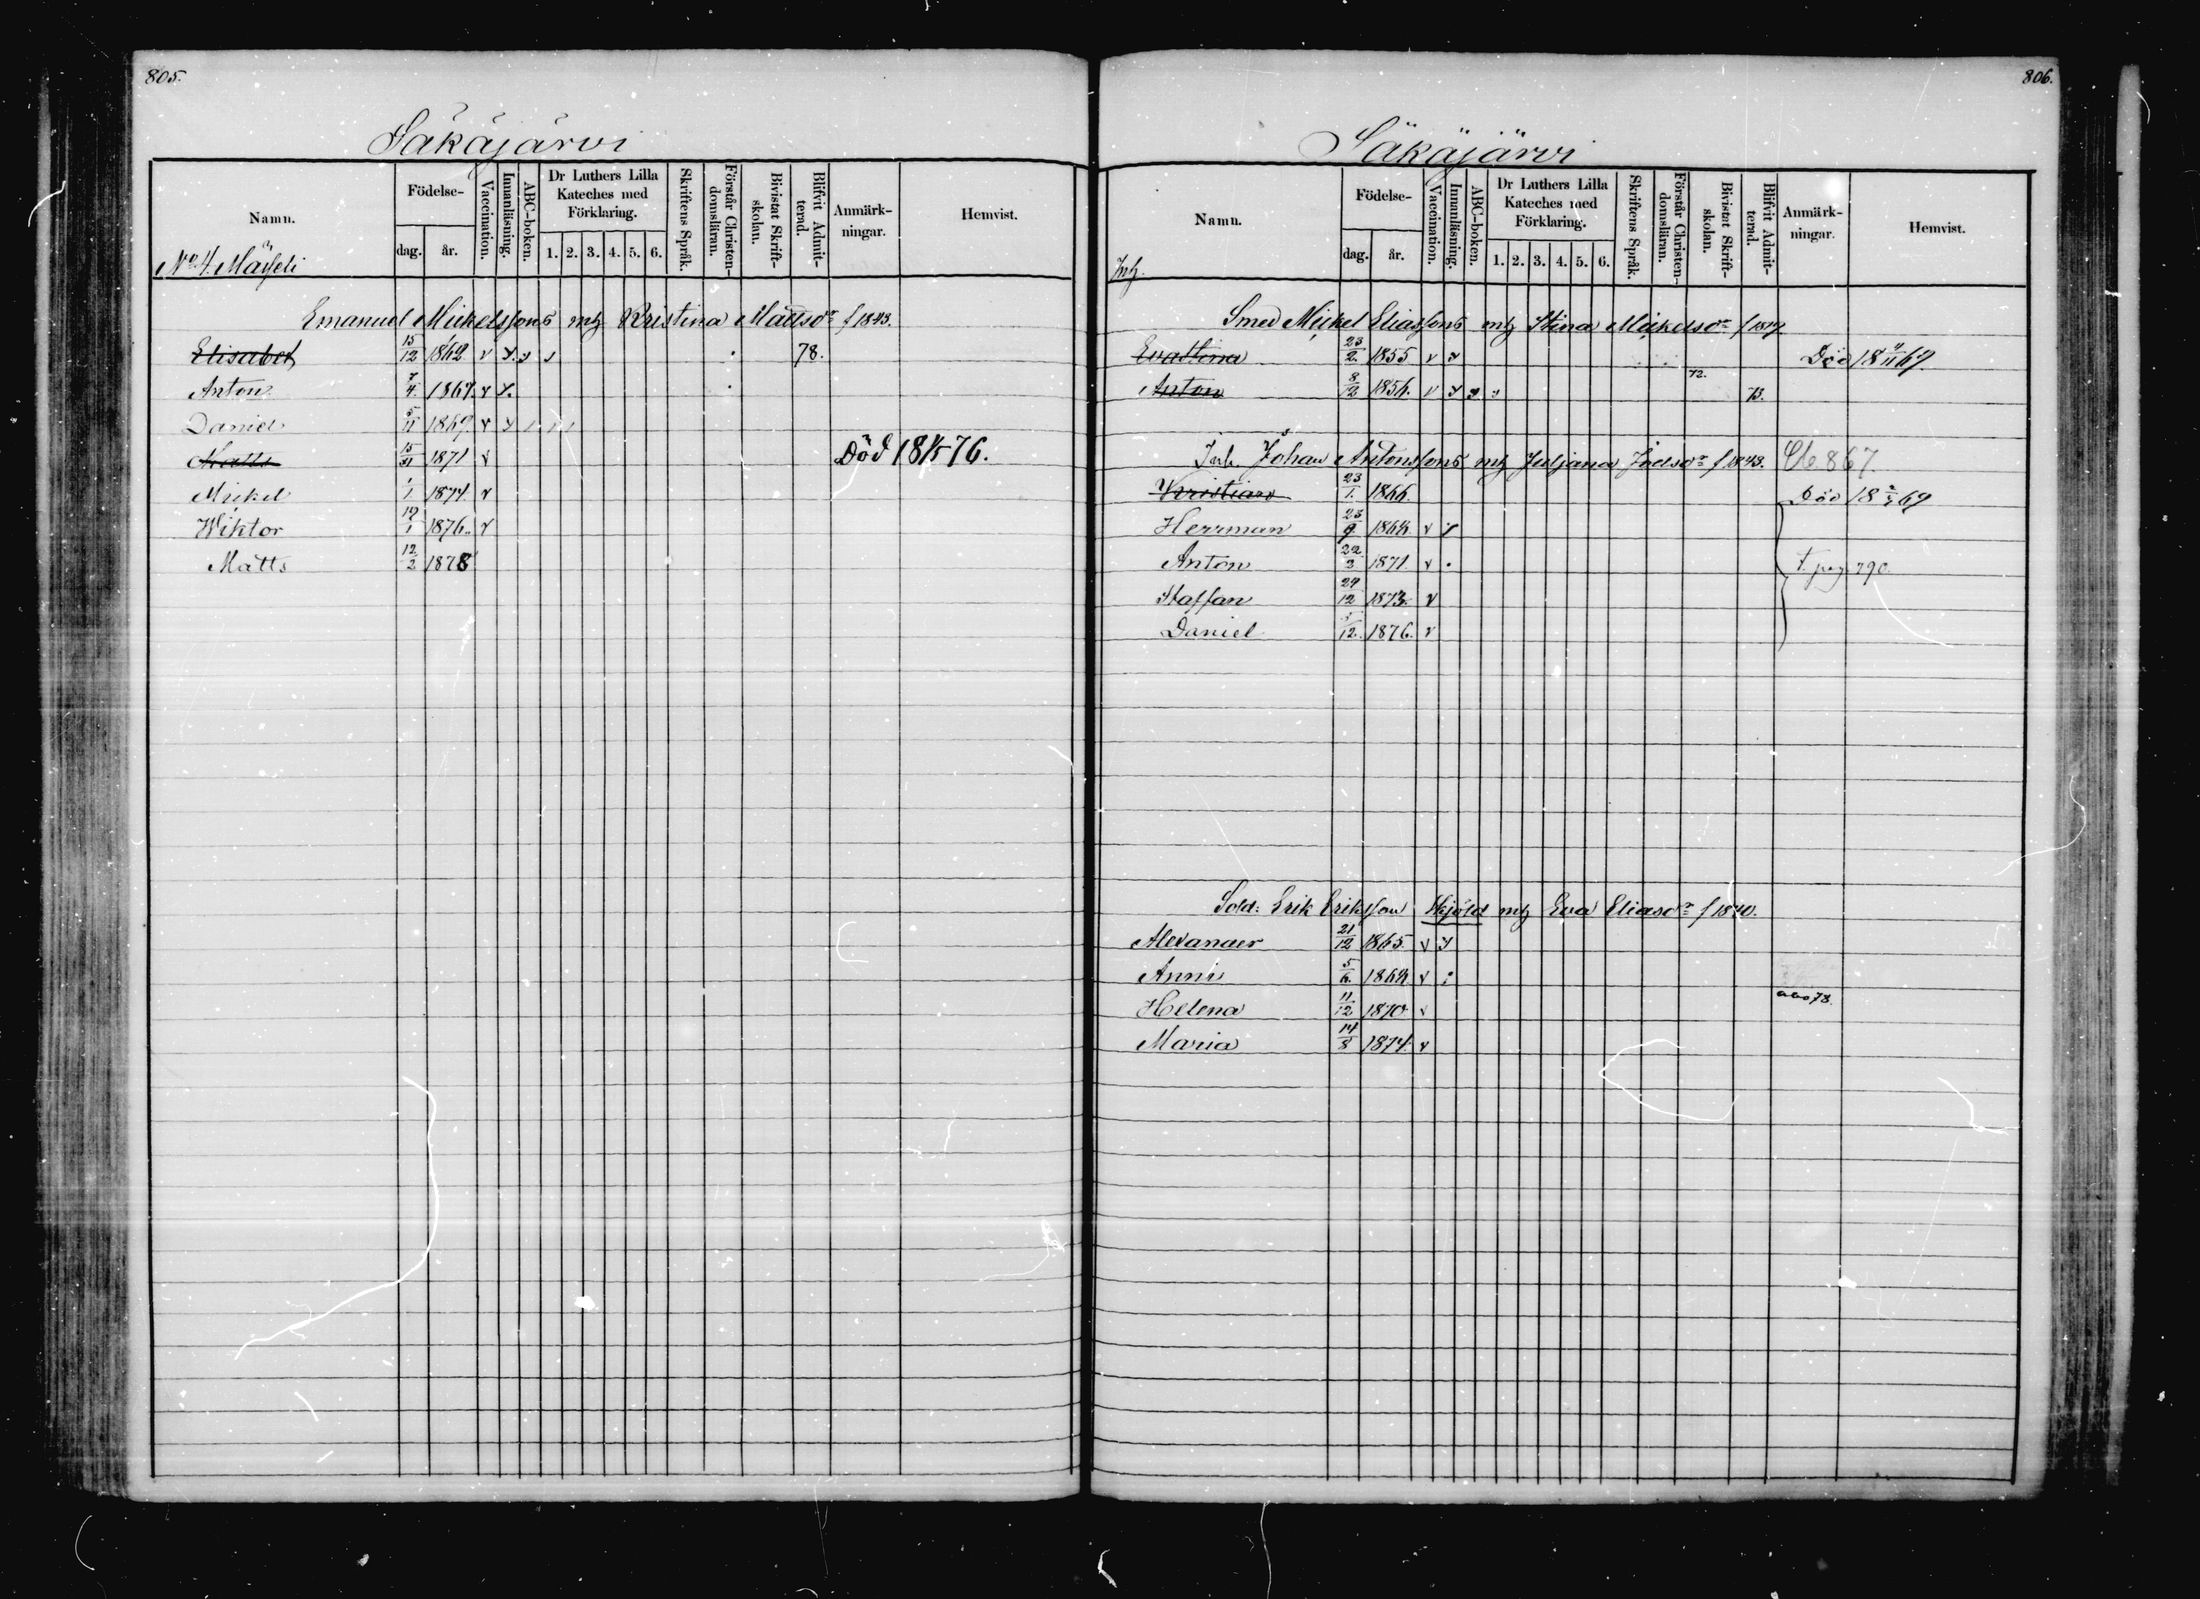 805.
Säkäjärvi
Namn.
Födelse-
dag.
år.
Vaccination.
Innanläsning.
ABC-boken.
Dr Luthers Lilla Kateches med Förklaring.
1. 2. 3. 4. 5. 6.
Skriftens Språk.
Förstår Christen-domsläran.
Bivistat Skrift-skolan.
Blifvit Admit-terad.
Anmärk-ningar.
Hemvist.
No 4
Emanuel Mickelssons mtz Kristina Mattsdr f 1843.
Elisabet 15/12 1862 v 78.
Anton 7/4 1867. v
Daniel 5/11 1869 v
Matts 1871 v Död 18 76.
Mickel 1/1 1874. v
Wiktor 19/1 1876. v
Matts 12/2 1878
806.
Säkäjärvi
Namn.
Födelse-
dag.
år.
Vaccination.
Innanläsning.
ABC-boken.
Dr Luthers Lilla Kateches med Förklaring.
1. 2. 3. 4. 5. 6.
Skriftens Språk.
Förstår Christen-domsläran.
Bivistat Skrift-skolan.
Blifvit Admit-terad.
Anmärk-ningar.
Hemvist.
Smed Mickel Eliassons mtz Stina Mickelsdr
23/2. 1855 v Död 18
Anton 8/12 1856. v 72. 73.
Inh. Johan Antonssons mtz Juljana f 1843. 867.
Kristian 23/1. 1866 Död 18 69
Herrman 23/9 1868. v
Anton 22/3 1871. v t. pag. 790.
Staffan 29/12 1873. v
Daniel 12. 1876. v
Sold: Erik Eriksson Skjöld mtz Eva Eliasdr f 1840.
Alexander 21/12 1865. v
Anna 5/6. 1868. v
Helena 11/12 1870 v 78.
Maria 14/8 1874. v